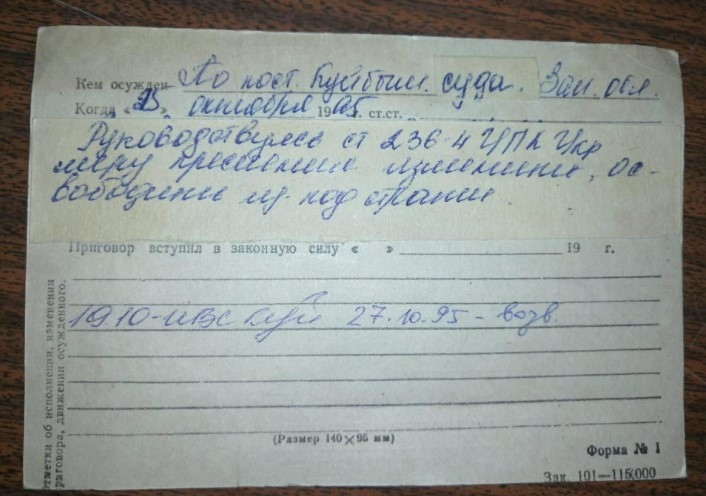 Кем осужден По пост. Куйбыш. суда. Зап. обл.
Когда « » октября 1995 г. ст.ст.
Руководствуясь ст 236-4 УПК Укр
меру пресечения изменить, ос-
вободить из под стражи
Приговор вступил в законную силу « » 19 г.
1910-ИВС Куй 27.10.95 - возв.
(Размер 140×95 мм)
Форма № 1
Зак. 191—115.000
тметки об исполнении, изменении
риговора, движении осужденного.